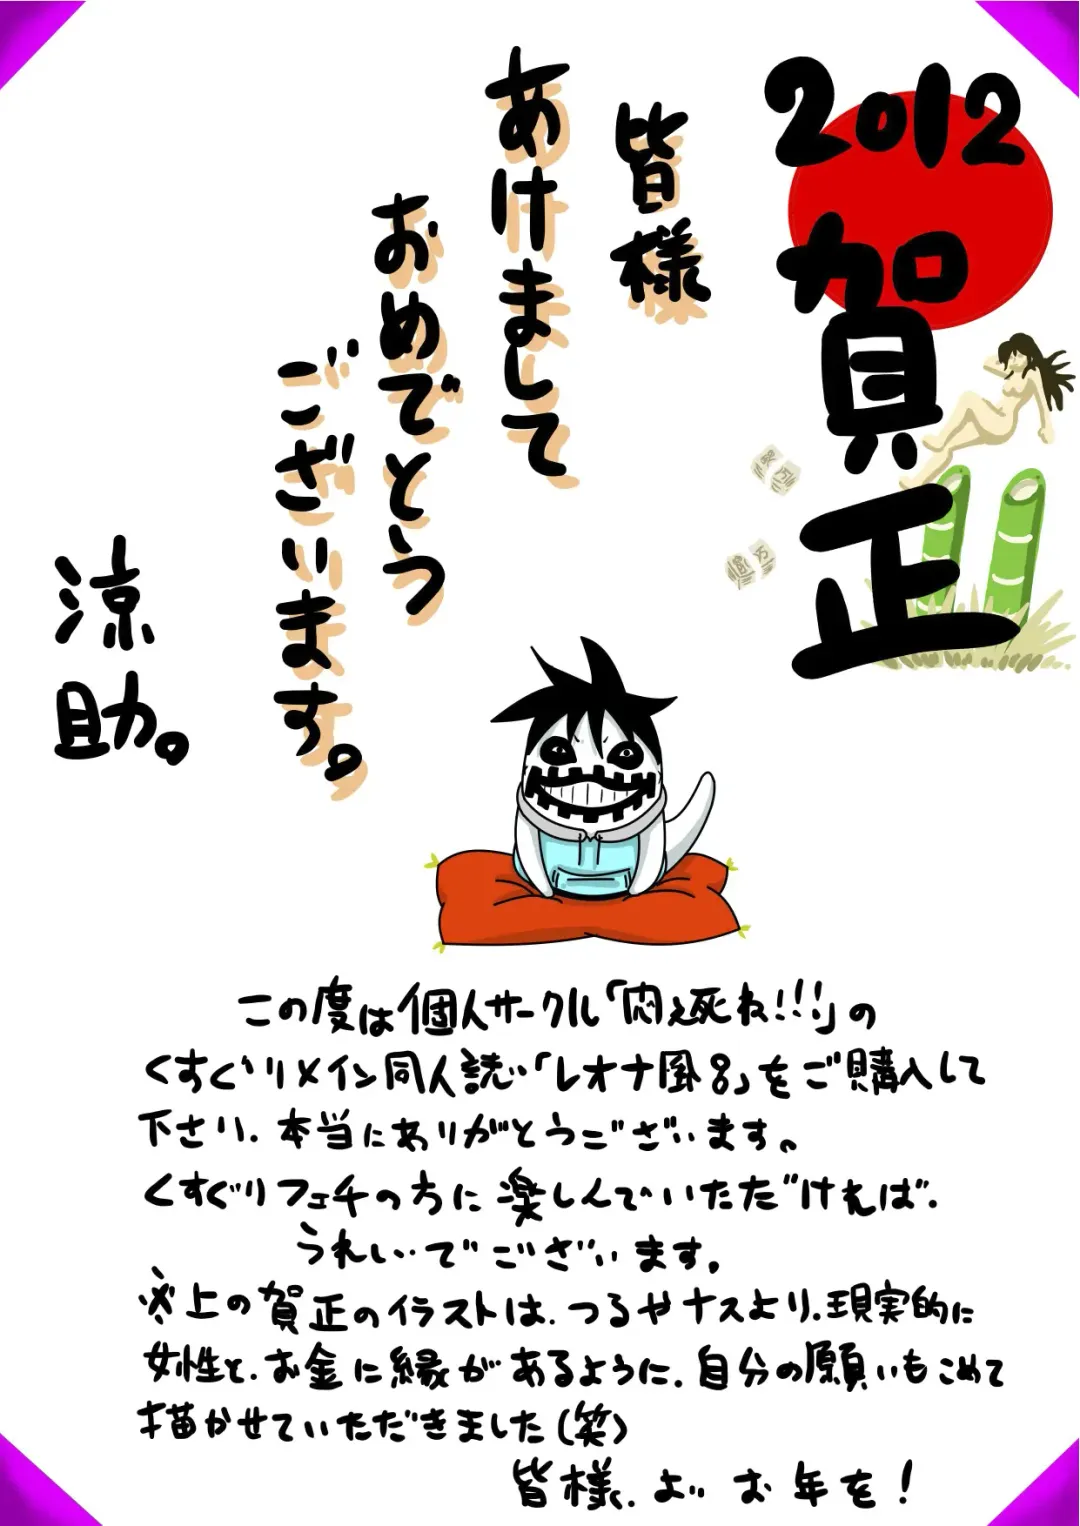 2012
賀正
皆様
あけまして
おめでとう
ございます。
涼助。
この度は個人サークル「悶え死ね!!!」の
くすぐりメイン同人誌「レオナ風呂」をご購入して
下さり、本当にありがとうございます。
くすぐりフェチの方に楽しんでいただければ、
うれしいでございます。
※上の賀正のイラストは、つるやナスより、現実的に
女性と、お金に縁があるように、自分の願いもこめて
描かせていただきました(笑)
皆様、よいお年を!